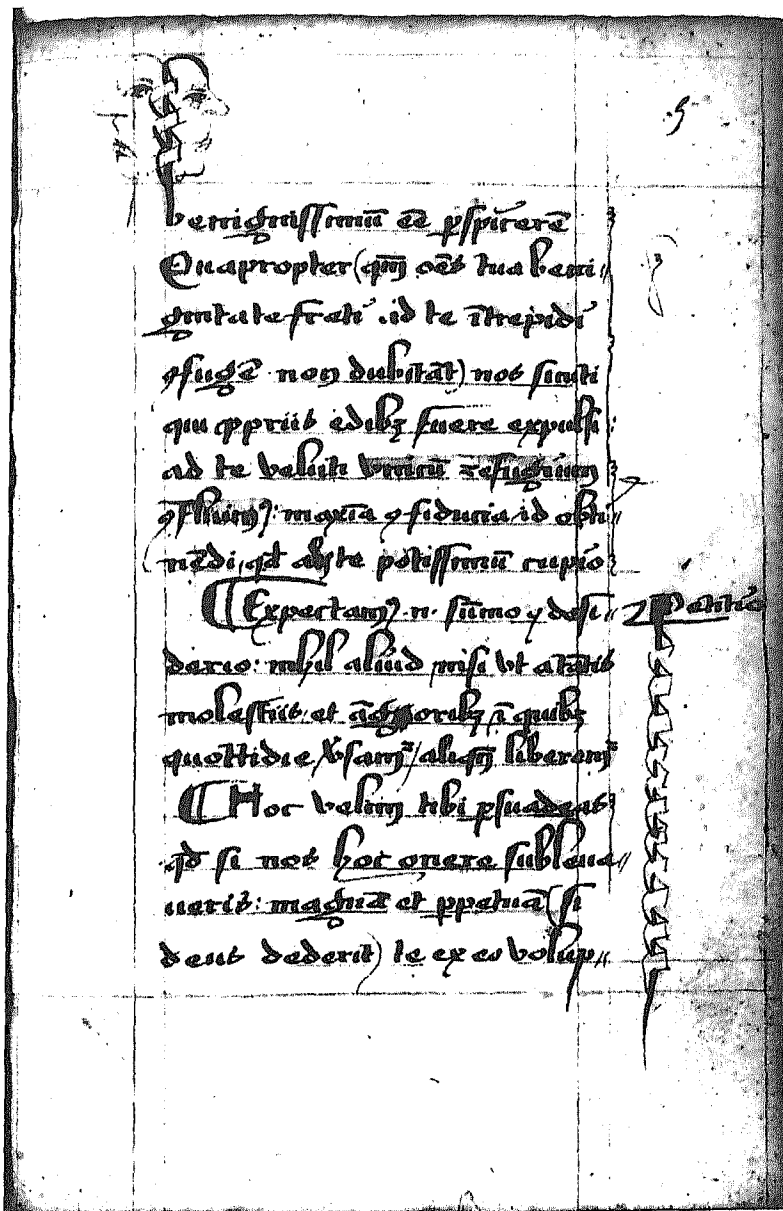 5
benignissimū eē ꝑspicerē
Quapropter (qm̄ oēs tua beni//
gnitate freti .id te ītrepidi
ꝯfugē non dubitāt) nos sicuti
qui ꝓpriis edibꝫ fuere expulsi
ad te veluti vnicū refugium
ꝯfluimꝰ: maxīa ꝯfiducia id obti//
nēdi, qd̄ abs te potissimū cupio
¶ Expectamꝰ .n. sūmo ꝯ desi//
Petitio
derio: nihil aliud nisi vt a tātis
molestiis: et āgoribꝫ, ī quibꝫ
quottidie v̓samͬ/ aliqn̄ liberemͬ
¶ Hoc velim tibi ꝑsuadeas
qd̄ si nos hoc onere subleua//
ueris: magnā et ꝑpetuā (si
deus dederit) te ex eo volup//